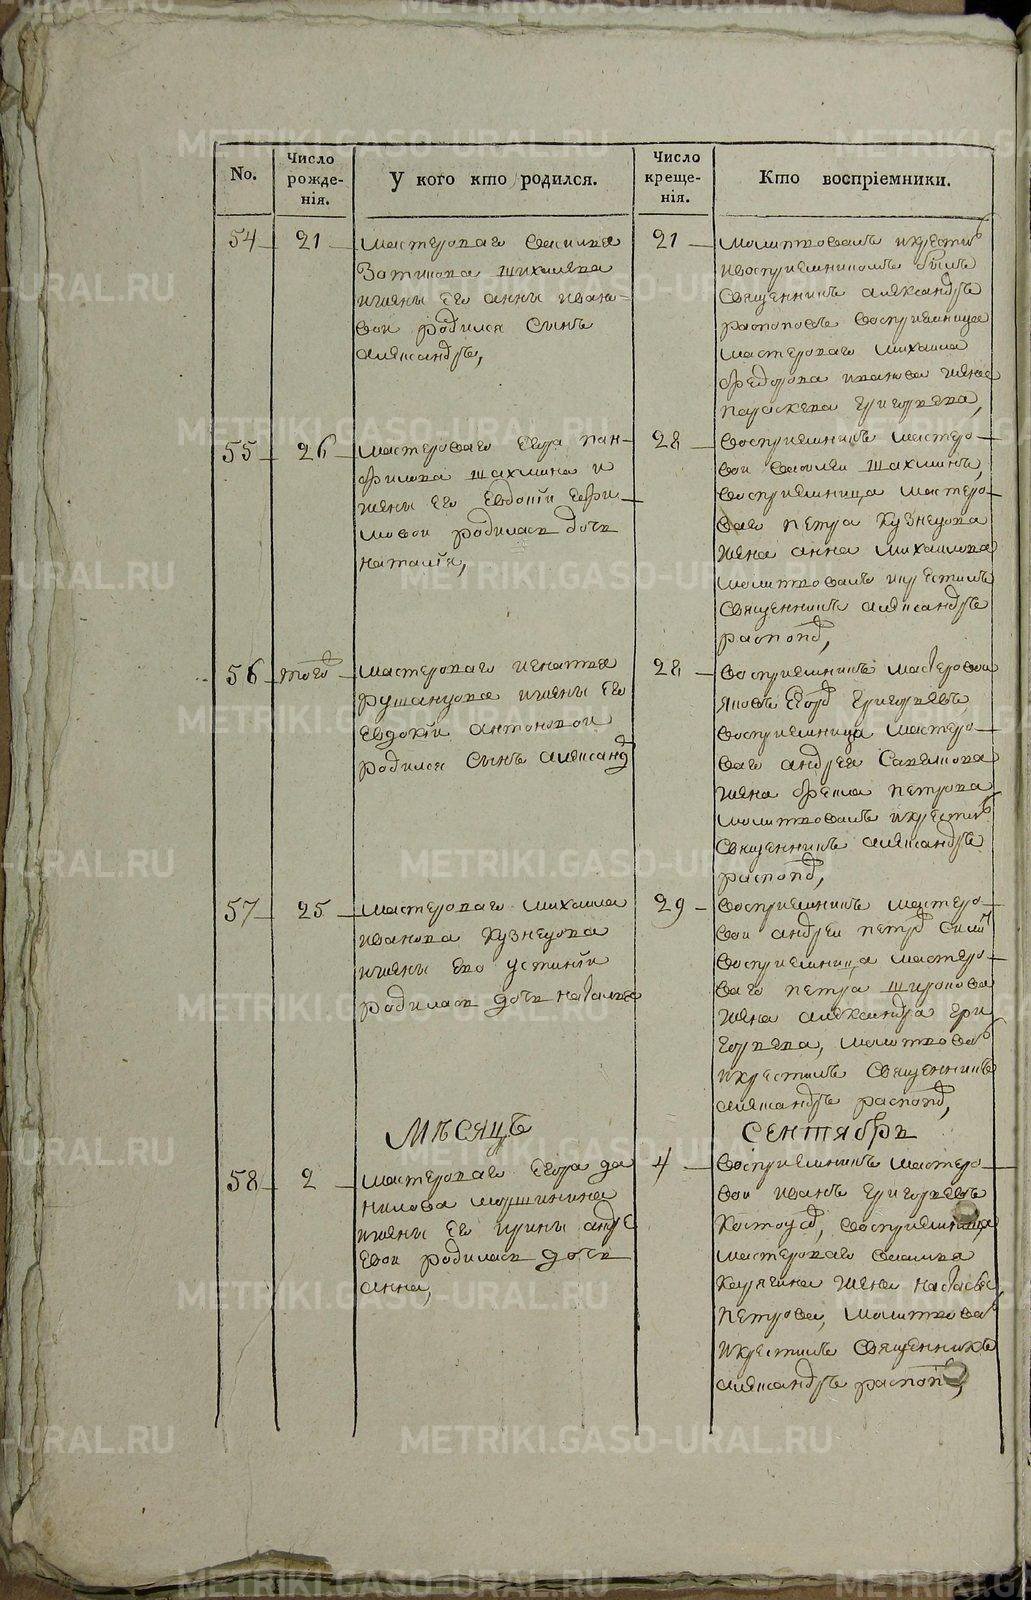 No.
Число рожде-нія.
У кого кто родился.
Число креще-нія.
Кто воспріемники.
54
21
мастероваго Василья
Зотикова Шихалева
ижены Его анны ивано-
вои родился Сынъ
александръ,
21
молитвовалъ икрестилъ
ивоспріемникомъ былъ
Священникъ александръ
распоповъ воспріемница
мастероваго михаила
федорова иванова жена
парасковья григорьева,
55
26
мастероваго Егора пан-
филова шахмина и
жены Его Евдокіи Ефи-
мовои родилась дочь
наталія,
28
воспріемникъ мастеро-
вои василеи шахминъ,
воспріемница мастеро-
ваго петра кузнецова
жена анна михаилова
молитвовалъ икрестилъ
Священникъ александръ
распоповъ,
56
того
мастероваго игнатья
ижены Его
Евдокіи антоновои
родился Сынъ александръ
28
воспріемникъ мастеровои
Григорьевъ
воспріемница мастеро-
ваго андрея Савелкова
жена петрова
молитвовалъ икрестилъ
Священникъ александръ
распоповъ,
57
25
мастероваго михаила
иванова кузнецова
ижены Его устиніи
родилась дочь наталья
29
воспріемникъ мастеро-
вои андреи петровъ
воспріемница мастеро-
ваго петра широкова
жена александра гри
горьева, молитвовалъ
икрестилъ Священникъ
александръ распоповъ,
МѢСЯЦЪ
СЕНТЯБРЬ
58
2
мастероваго Егора да
нилова моршинина
ижены Его ирины андре
евои родилась дочь
анна,
4
воспріемникъ мастеро-
вои иванъ григорьевъ
костоусовъ, воспріемница
мастероваго василья
карягина жена настасья
петрова, молитвовалъ
икрестилъ Священникъ
александръ распоповъ,
METRIKI.GASO-URAL.RU